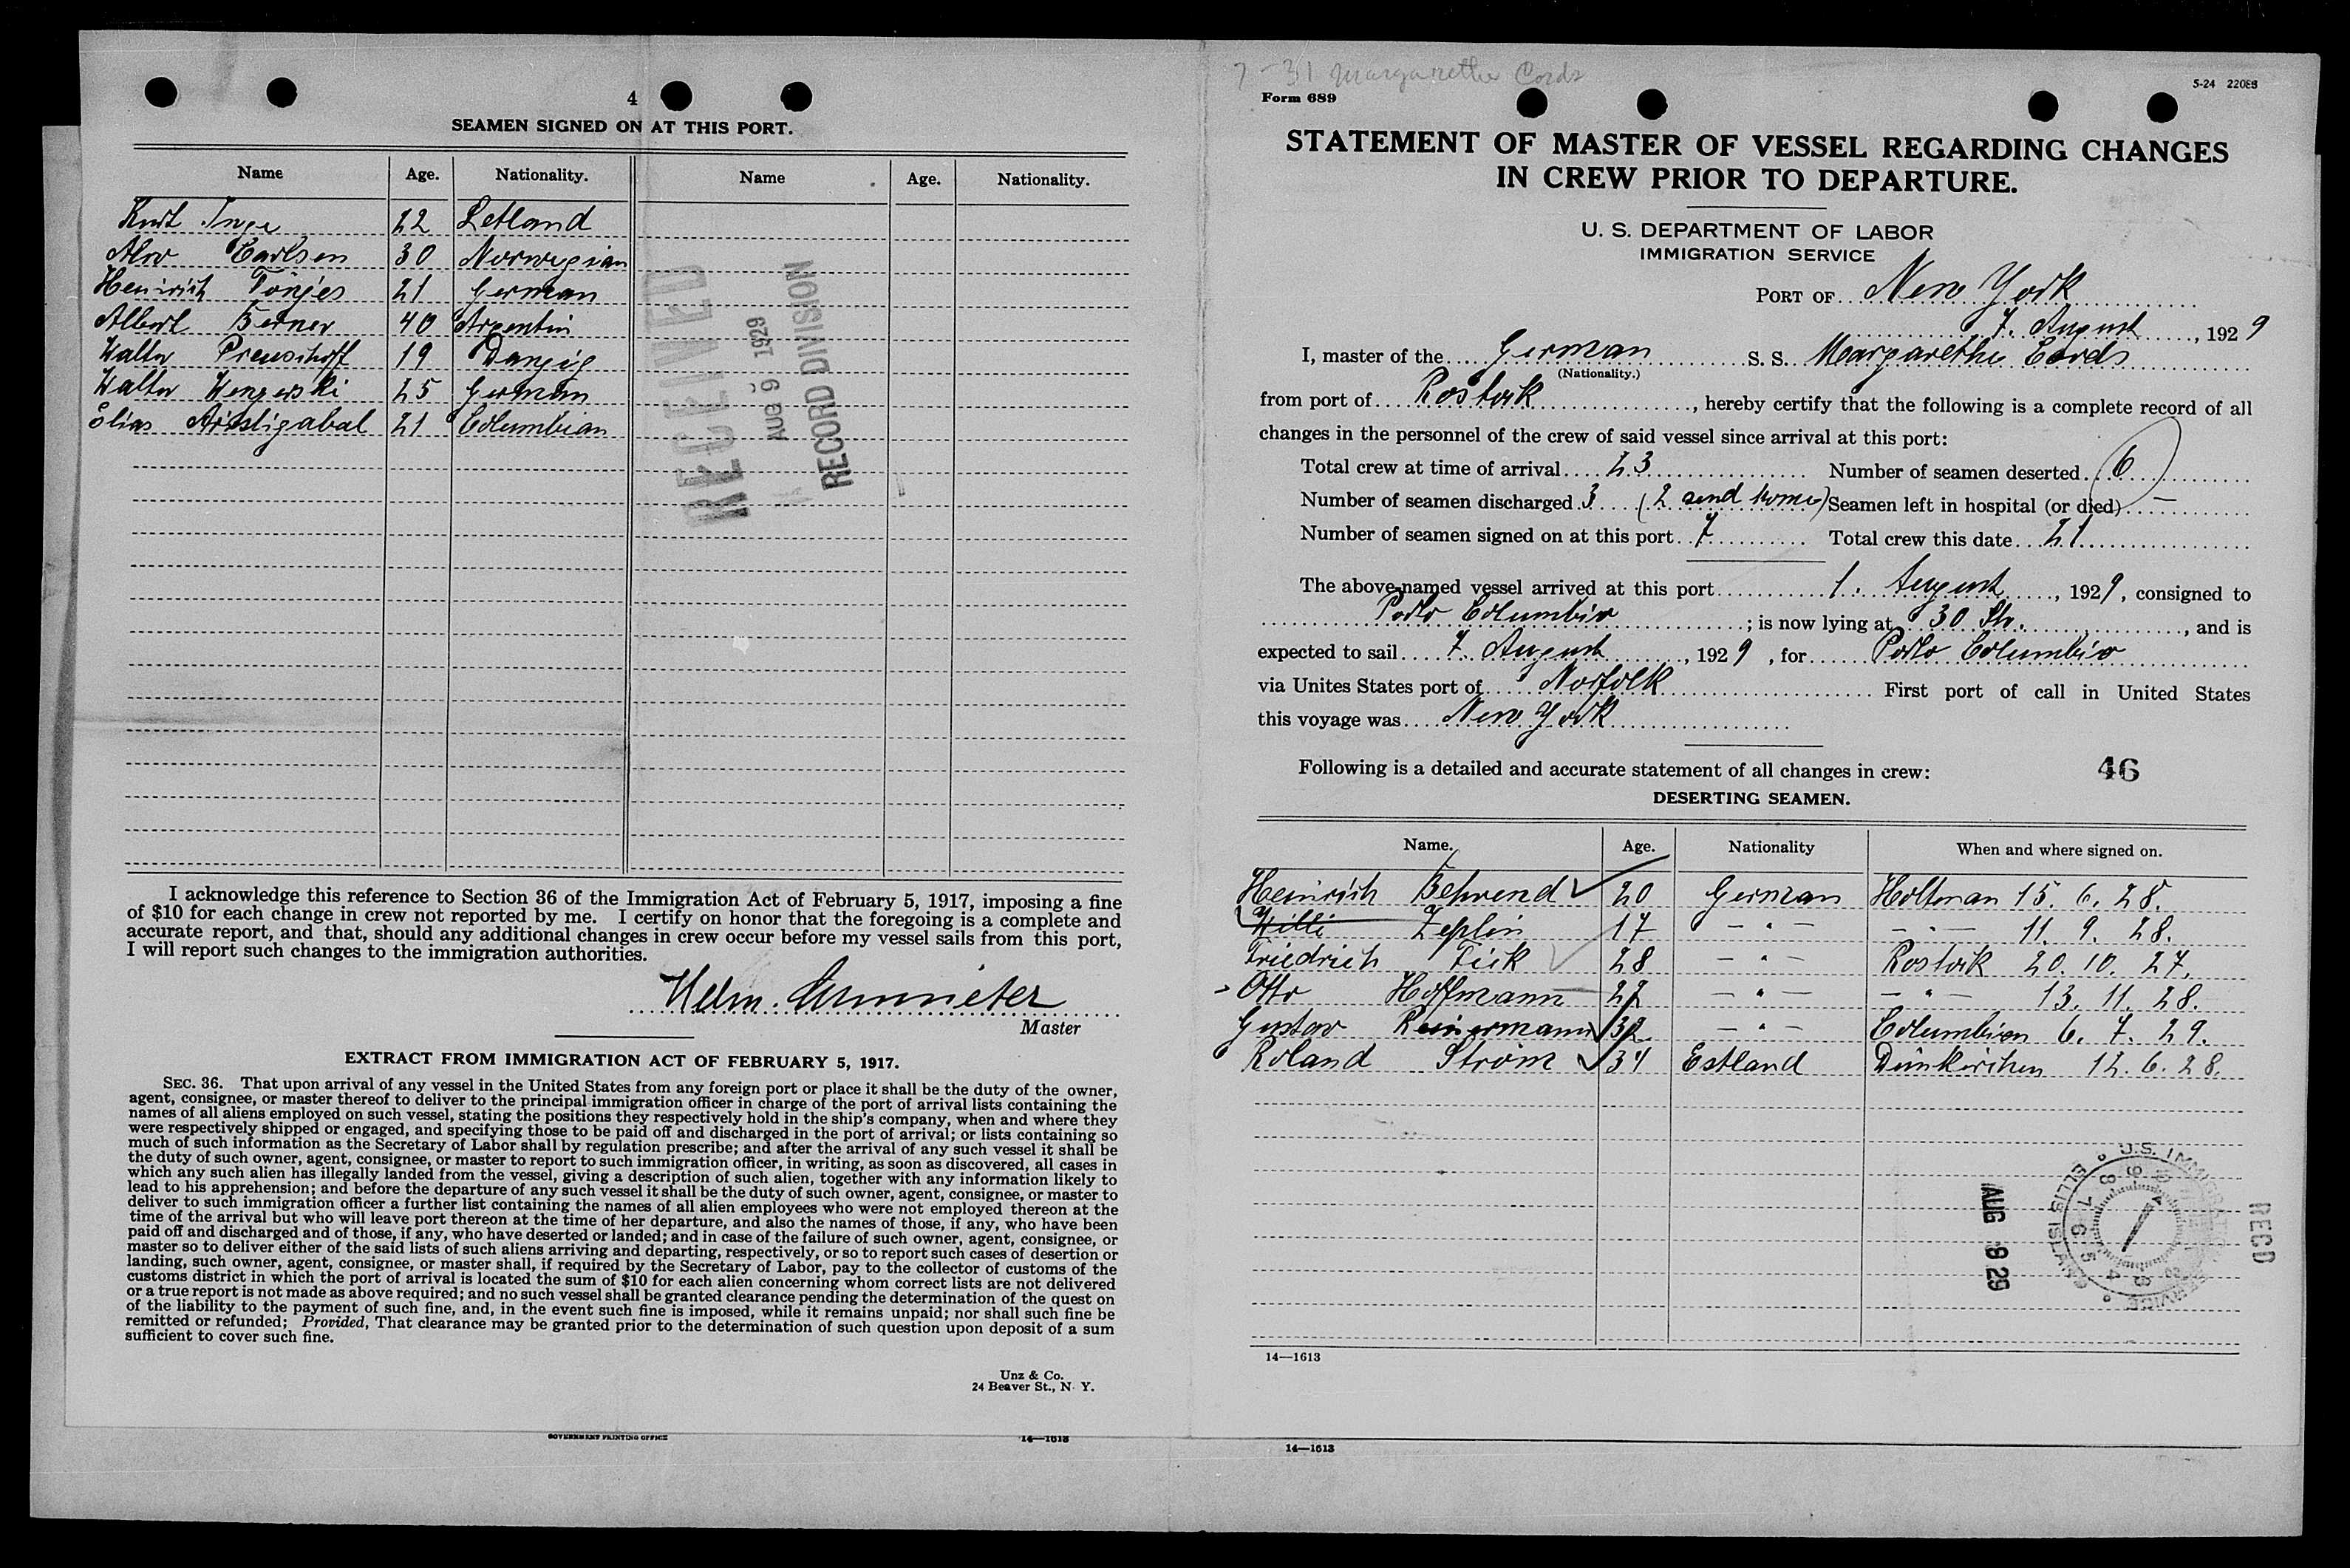 4
SEAMEN SIGNED ON AT THIS PORT.
Name Age. Nationality. Name Age. Nationality.
Kurt Inge 22 Letland
Alov Carlsen 30 Norwegian
Heinrich Tönjes 21 German
Albert Berner 40 Argentin
Walter Preuschoff 19 Danzig
Walter 25 German
Elias Aristigabal 21 Columbian
RECEIVED
AUG 9 1929
RECORD DIVISION
I acknowledge this reference to Section 36 of the Immigration Act of February 5, 1917, imposing a fine
of $10 for each change in crew not reported by me. I certify on honor that the foregoing is a complete and
accurate report, and that, should any additional changes in crew occur before my vessel sails from this port,
I will report such changes to the immigration authorities.
Master
EXTRACT FROM IMMIGRATION ACT OF FEBRUARY 5, 1917.
SEC. 36. That upon arrival of any vessel in the United States from any foreign port or place it shall be the duty of the owner,
agent, consignee, or master thereof to deliver to the principal immigration officer in charge of the port of arrival lists containing the
names of all aliens employed on such vessel, stating the positions they respectively hold in the ship's company, when and where they
were respectively shipped or engaged, and specifying those to be paid off and discharged in the port of arrival; or lists containing so
much of such information as the Secretary of Labor shall by regulation prescribe; and after the arrival of any such vessel it shall be
the duty of such owner, agent, consignee, or master to report to such immigration officer, in writing, as soon as discovered, all cases in
which any such alien has illegally landed from the vessel, giving a description of such alien, together with any information likely to
lead to his apprehension; and before the departure of any such vessel it shall be the duty of such owner, agent, consignee, or master to
deliver to such immigration officer a further list containing the names of all alien employees who were not employed thereon at the
time of the arrival but who will leave port thereon at the time of her departure, and also the names of those, if any, who have been
paid off and discharged and of those, if any, who have deserted or landed; and in case of the failure of such owner, agent, consignee, or
master so to deliver either of the said lists of such aliens arriving and departing, respectively, or so to report such cases of desertion or
landing, such owner, agent, consignee, or master shall, if required by the Secretary of Labor, pay to the collector of customs of the
customs district in which the port of arrival is located the sum of $10 for each alien concerning whom correct lists are not delivered
or a true report is not made as above required; and no such vessel shall be granted clearance pending the determination of the quest on
of the liability to the payment of such fine, and, in the event such fine is imposed, while it remains unpaid; nor shall such fine be
remitted or refunded; Provided, That clearance may be granted prior to the determination of such question upon deposit of a sum
sufficient to cover such fine.
Unz & Co.
24 Beaver St., N. Y.
GOVERNMENT PRINTING OFFICE 14—1613
7-31 Margarethe Cords
Form 689
5-24 22088
STATEMENT OF MASTER OF VESSEL REGARDING CHANGES
IN CREW PRIOR TO DEPARTURE.
U. S. DEPARTMENT OF LABOR
IMMIGRATION SERVICE
PORT OF New York
7. August, 1929
I, master of the German S. S. Margarethe Cords
(Nationality.)
from port of Rostock, hereby certify that the following is a complete record of all
changes in the personnel of the crew of said vessel since arrival at this port:
Total crew at time of arrival 23 Number of seamen deserted 6
Number of seamen discharged 3 (2 send home) Seamen left in hospital (or died) —
Number of seamen signed on at this port 7 Total crew this date 21
The above-named vessel arrived at this port 1. August, 1929, consigned to
Porto Columbia; is now lying at 30 Str., and is
expected to sail 7. August, 1929, for Porto Columbia
via Unites States port of Norfolk First port of call in United States
this voyage was New York
Following is a detailed and accurate statement of all changes in crew:
46
DESERTING SEAMEN.
Name. Age. Nationality When and where signed on.
Heinrich Behrend 20 German Holtenan 15. 6. 28.
Willi Zeplin 17 — " — — " — 11. 9. 28.
Friedrich Fick 28 — " — Rostock 20. 10. 27.
Otto Hoffmann 22 — " — — " — 13. 11. 28.
Gustav Reinermann 32 — " — Columbien 6. 7. 29.
Roland Ström 34 Estland Dünkirchen 12. 6. 28.
U.S. IMMIGRATION SERVICE
ELLIS ISLAND
AUG 9 29
RECD
14—1613
14—1613